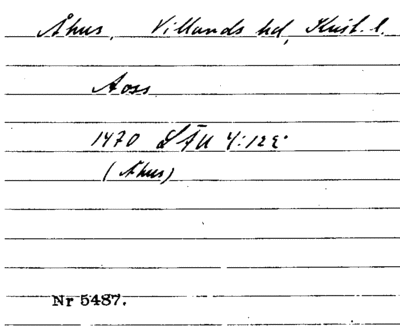 Åhus, Villands hd, Krist. l.
Aoss
1470 LÄU 4:122
(Åhus)
Nr 5487.